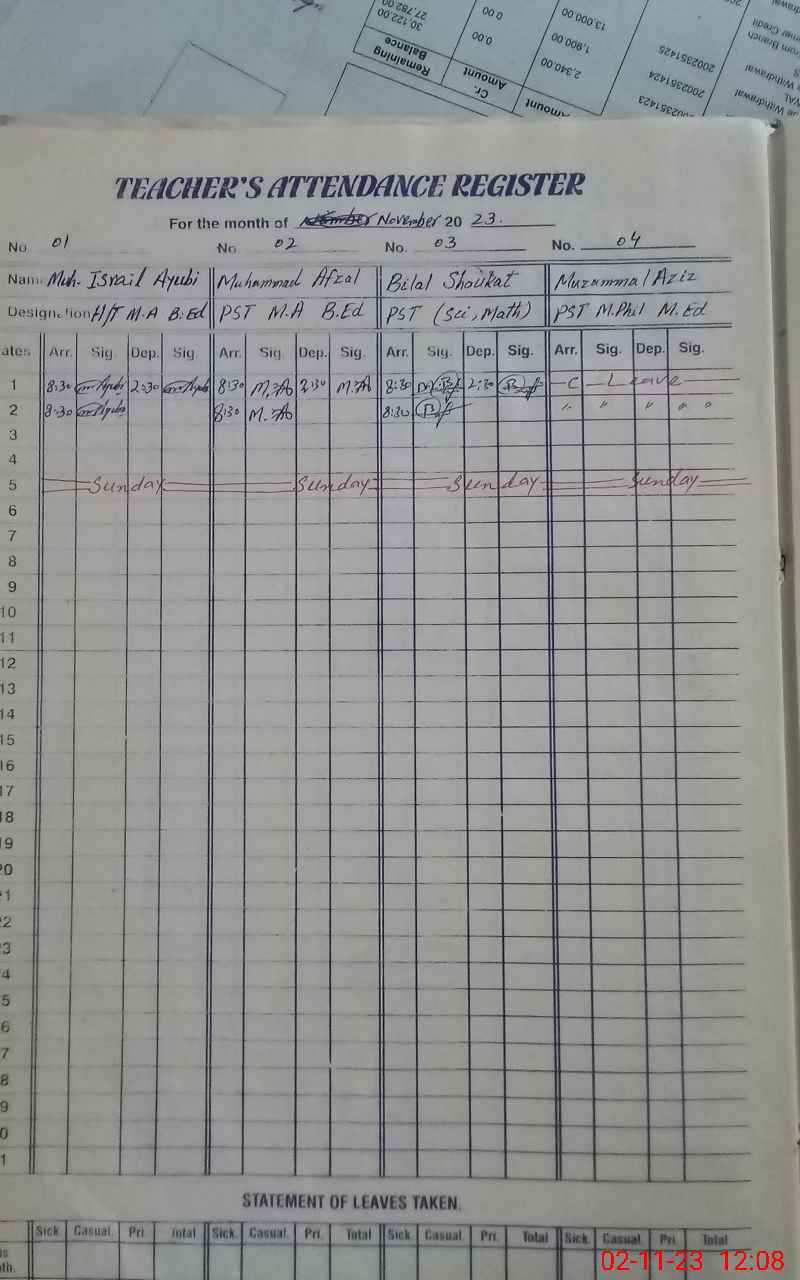 Remaining
Balance
30,122.00
27,782.00
Cr.
Amount
0.00
0.00
Amount
2,340.00
1,900.00
13,000.00
2002351423
2002351424
2002351425
Withdrawal
Withdrawal
rom Branch
Credit
TEACHER'S ATTENDANCE REGISTER
For the month of November 20 23.
No. 01 No. 02 No. 03 No. 04
Nam Muh. Israil Ayubi Muhammad Afzal Bilal Shoukat Muzammal Aziz
Designation H/T M.A B.Ed PST M.A B.Ed PST (Sci, Math) PST M.Phil M.Ed
ates Arr. Sig. Dep. Sig. Arr. Sig. Dep. Sig. Arr. Sig. Dep. Sig. Arr. Sig. Dep. Sig.
1 8:30 2:30 8:30 M.A 2:30 M.A 8:30 2:30 C - Leave
2 8:30 8:30 M.A 8:30 〃 〃 〃 〃 〃
3
4
5 Sunday Sunday Sunday Sunday
6
7
8
9
10
11
12
13
14
15
16
17
18
19
20
1
2
3
4
5
6
7
8
9
0
1
STATEMENT OF LEAVES TAKEN.
Sick Casual Pri. Total Sick. Casual. Pri. Total Sick. Casual. Pri. Total Sick. Casual. Pri. Total
is
th.
02-11-23 12:08